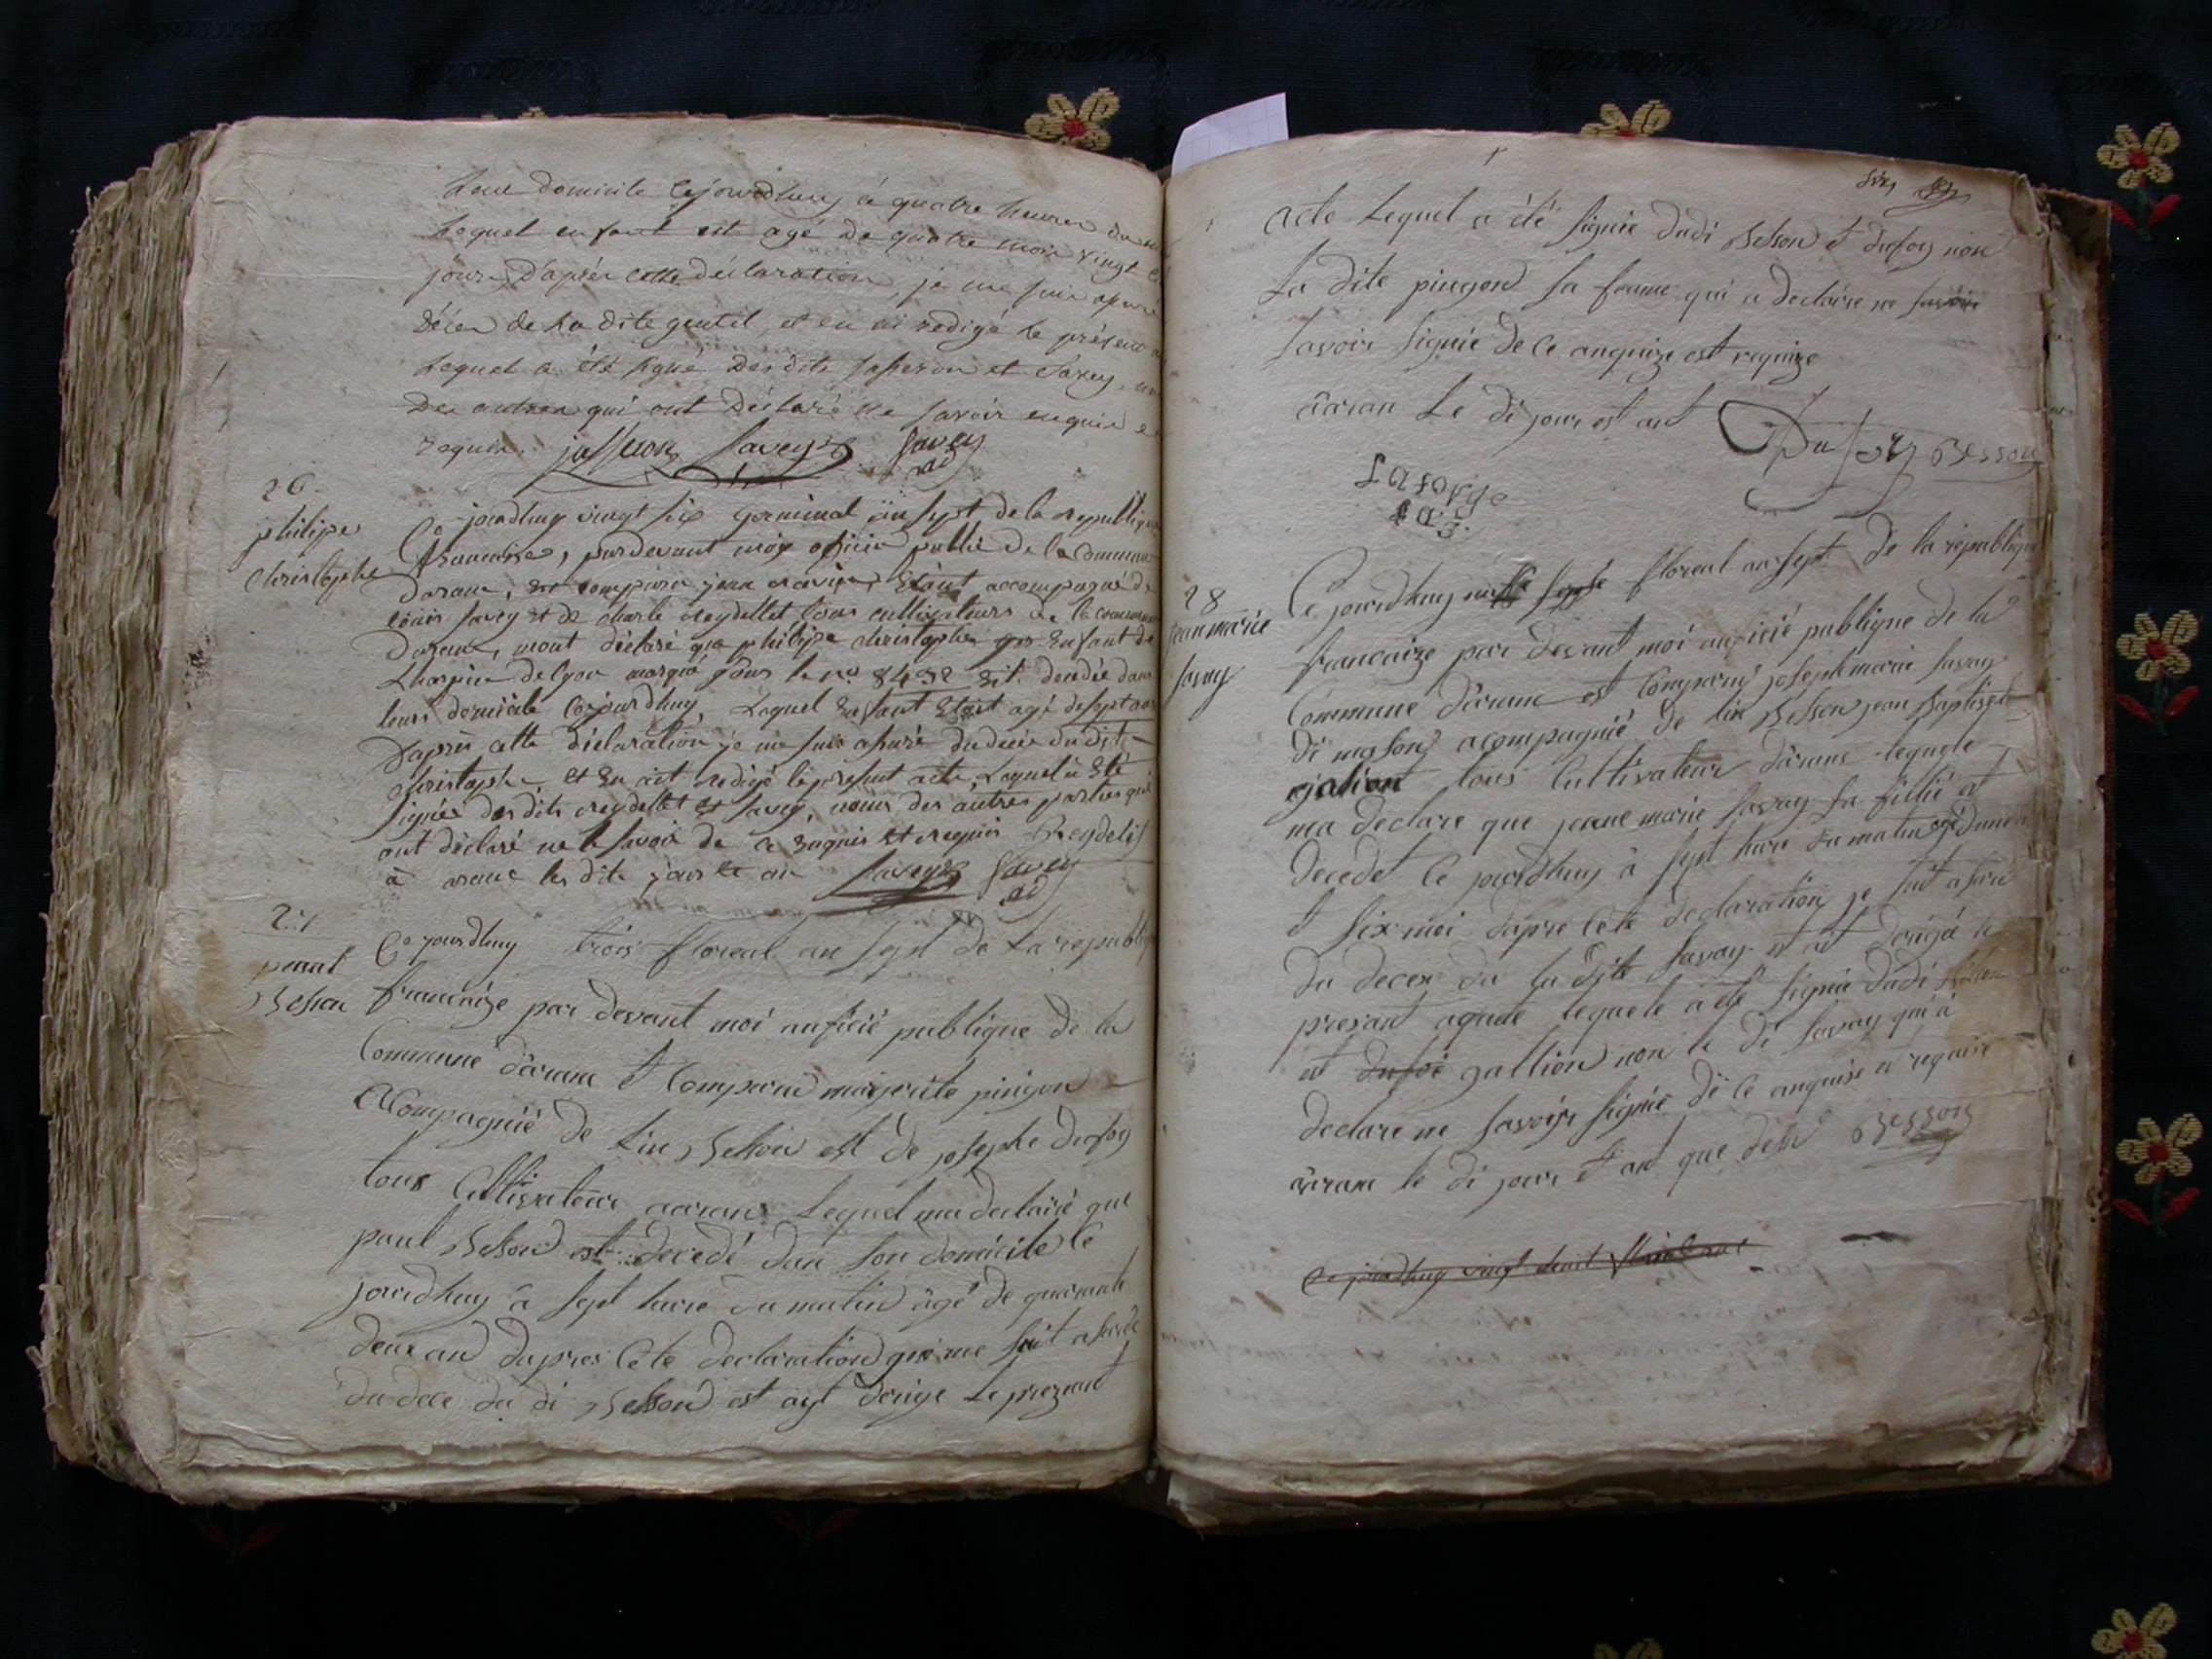 leur domicile cejourdhuy à quatre heures du
Lequel enfant est agé de quatre mois vingt
jours, D'après cette déclaration, je me suis assuré
Décès de La dite gentil, et en ai redigé le présent
Lequel a été signé desdits jasseron et Savey,
Des autres qui ont Déclaré ne savoir enquis
requis. jasseron Savey Savey
ad
26
philipe
Christophe
Ce jourdhuy vingt six germinal an sept de la republique
francaise, pardevant moy oficier public de la Commune
Daranc, est comparu jean etant accompagné de
Louis Savey et de charle reydellet tous cultivateurs de la commune
Daranc, mont déclaré que philipe christophe enfant de
Lhospice de lyon marqué sous le no. 8492 est décédé dans
leurs domicile Cejourdhuy, Lequel enfant etoit agé de sept ans
Dapres cette déclaration je me suis assuré du decès dudit
christophe, et en ait redigé le present acte, Lequel a eté
signé des dits reydellet et Savey, nonis des autres parties qui
ont déclaré ne le savoir de ce enquis et requis Reydelet
à aranc les dits jours et an Savey Savey
ad
27
paul
Besson
Ce jourdhuy trois floreal an sept de La republique
francaize par devant moi auficié publique de la
Commune d'aranc et Comparue margerite pingon
acompagniè de Lin Besson est de josephe Dufoy
tous Cultivateur aaranc Lequel ma declairé que
paul Besson est decedé dan son domicile Ce
jourdhuy à sept heure du matin agé de quarante
deux an dapres Cete declaration que me suit asuré
du dece du di Besson est ayt derige Le prezant
acte Lequel a été signie dudi Besson et dufoy non
La dite pingon sa famme qui a declaire ne savoir
savoir signie de ce anquize est requize
aaran Le di jour est ant Dufoy Besson
Laforge
ad.
28
jean marie
Savay
Ce jourdhuy sepe floreal an sept de la republique
francaize par devant moi auficié publique de la
Commune d'aranc est Comparu joseph marie Savay
di mason acompagnié de lin Besson jean Baptiste
galiont tous Cultivateur d'aranc lequele
ma declare que jeane marie Savay sa fillie at
decedet Ce jourdhuy à sept hure du matin agé dun
et six moi dapre Cete declaration je suit asuré
du deces du la dite Savay et at derigé le
presant aquete lequele a eté signie dudi Besson
et dufoi gallion non le di Savay qui a
declare ne savoir signié de ce anquise et requise
aarane le di jour et ant que desu Besson
Ce jourdhuy vingt